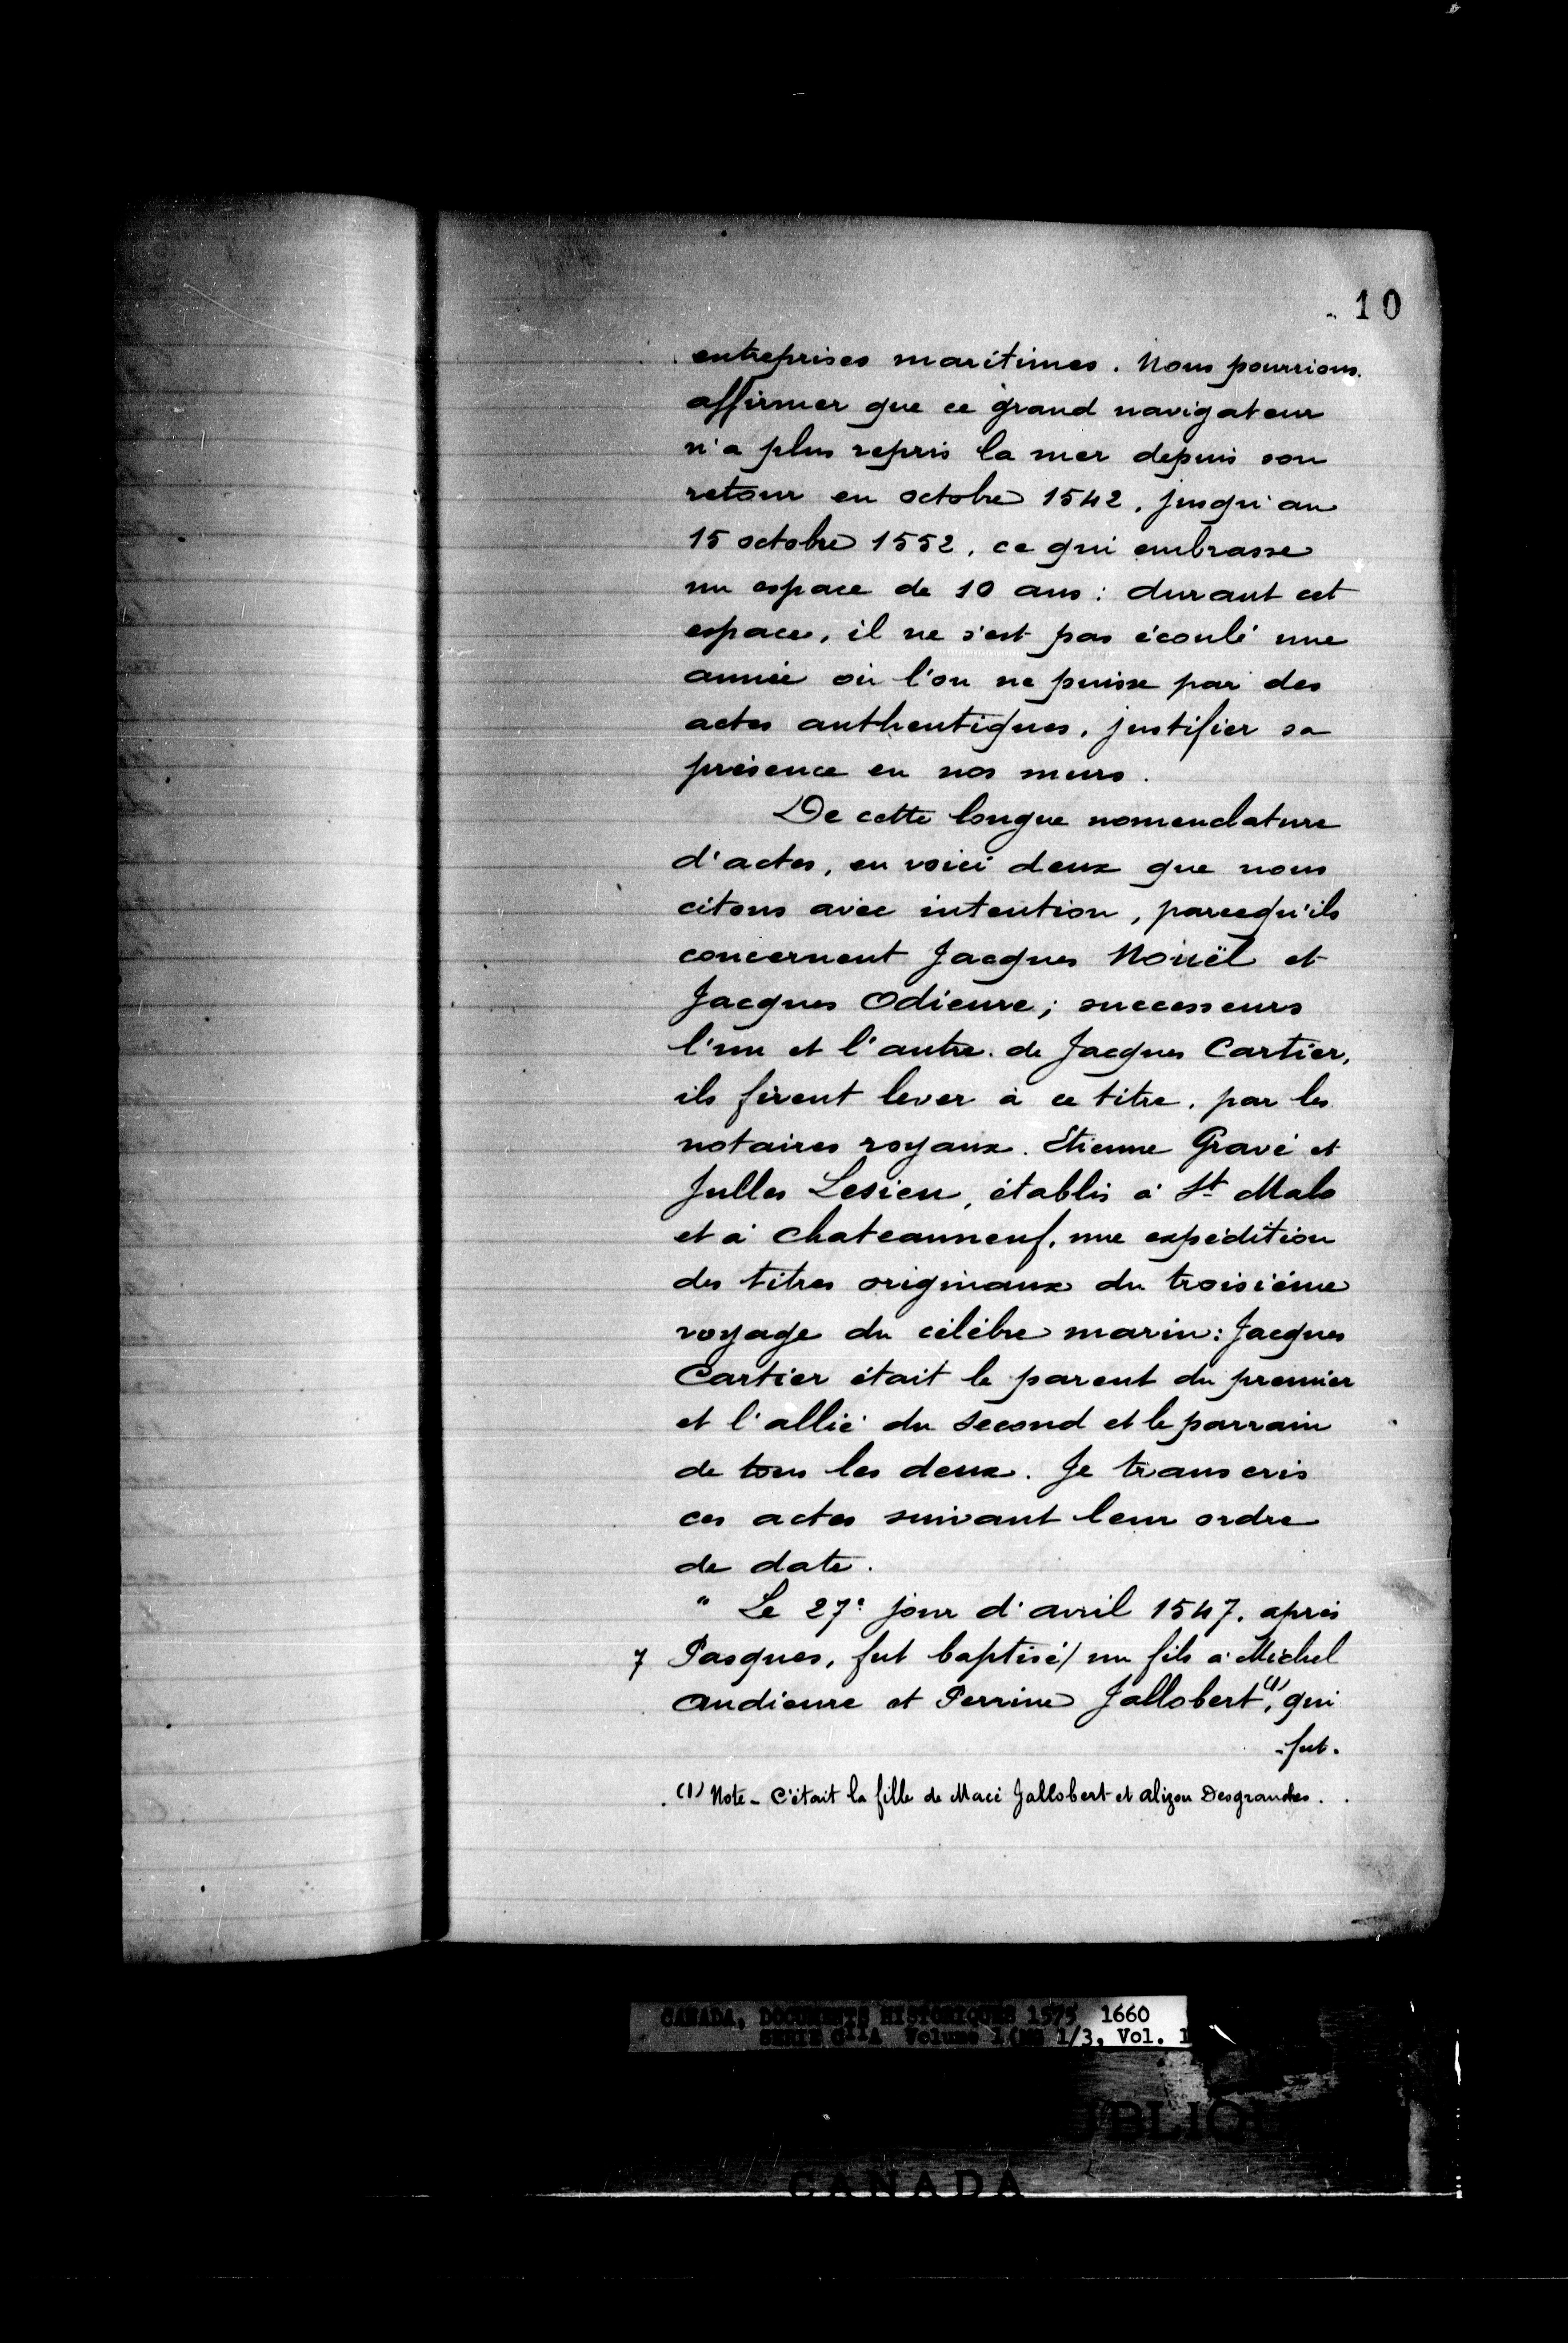 10
entreprises maritimes. Nous pourrions
affirmer que ce grand navigateur
n'a plus repris la mer depuis son
retour en octobre 1542, jusqu'au
15 octobre 1552, ce qui embrasse
un espace de 10 ans: durant cet
espace, il ne s'est pas écoulé une
année où l'on ne puisse par des
actes authentiques, justifier sa
présence en nos murs.
De cette longue nomenclature
d'actes, en voici deux que nous
citons avec intention, parcequ'ils
concernent Jacques Noüel et
Jacques Odieure; successeurs
l'un et l'autre de Jacques Cartier,
ils firent lever à ce titre, par les
notaires royaux Etienne Gravé et
Julles Lesieu, établis à St Malo
et à Chateauneuf, une expédition
des titres originaux du troisième
voyage du célèbre marin: Jacques
Cartier était le parent du premier
et l'allié du second et le parrain
de tous les deux. Je transcris
ces actes suivant leur ordre
de date.
" Le 27e jour d'avril 1547, après
7 Pasques, fut baptisé/ un fils à Michel
Audieure et Perrine Jallobert (1), qui
fut.
(1) Note - C'était la fille de Macé Jallobert et Alizon Desgranches.
CANADA, DOCUMENTS HISTORIQUES 1575 1660
SERIE C11A Volume 1 (MG 1/3, Vol. 1
UBLIQU
CANADA